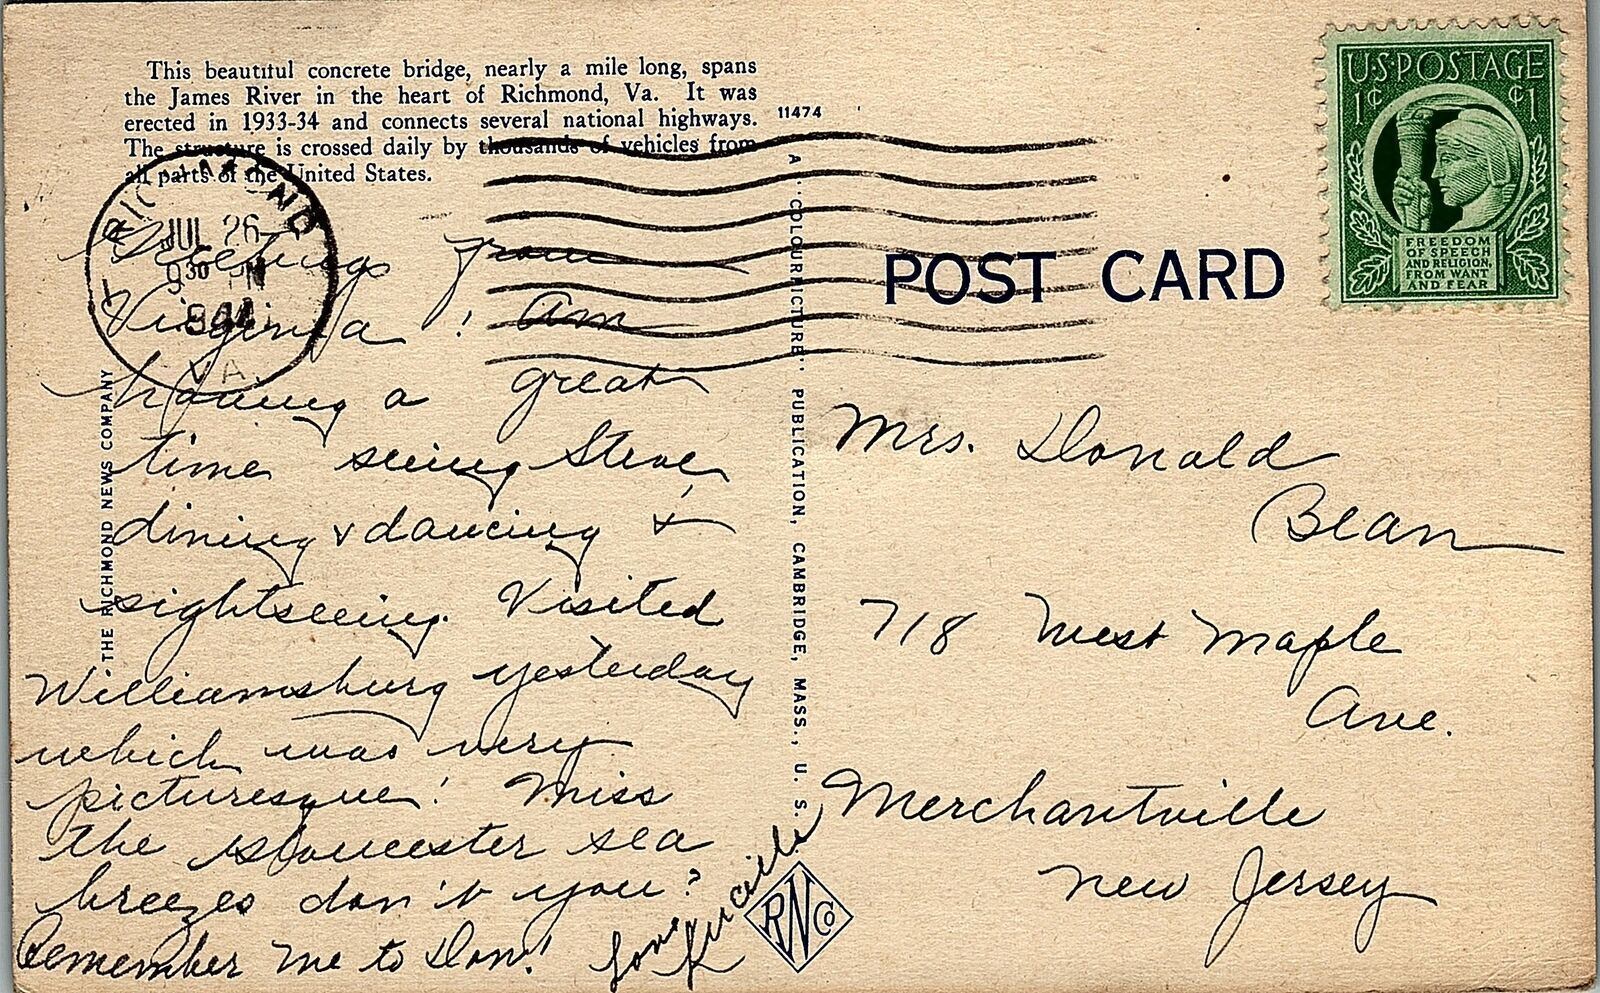 This beautiful concrete bridge, nearly a mile long, spans
the James River in the heart of Richmond, Va. It was
erected in 1933-34 and connects several national highways.
The structure is crossed daily by thousands of vehicles from
all parts of the United States.
11474
U.S. POSTAGE
1¢ ¢1
FREEDOM
OF SPEECH
AND RELIGION,
FROM WANT
AND FEAR
RICHMOND
JUL 26
9 30
VA.
POST CARD
THE RICHMOND NEWS COMPANY
A "COLOURPICTURE" PUBLICATION, CAMBRIDGE, MASS., U. S.
Greetings from
Virginia! Am
having a great
time seeing Steve,
dining & dancing &
sightseeing. Visited
Williamsburg yesterday
which was very
picturesque! Miss
the Gloucester sea
breezes don't you?
Remember me to Don!
Love
RNCo
Mrs. Donald
Bean
718 West Maple
Ave.
Merchantville
New Jersey